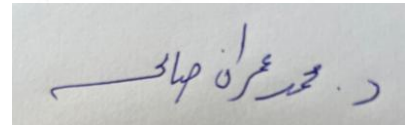 د. محمد عمران صالح